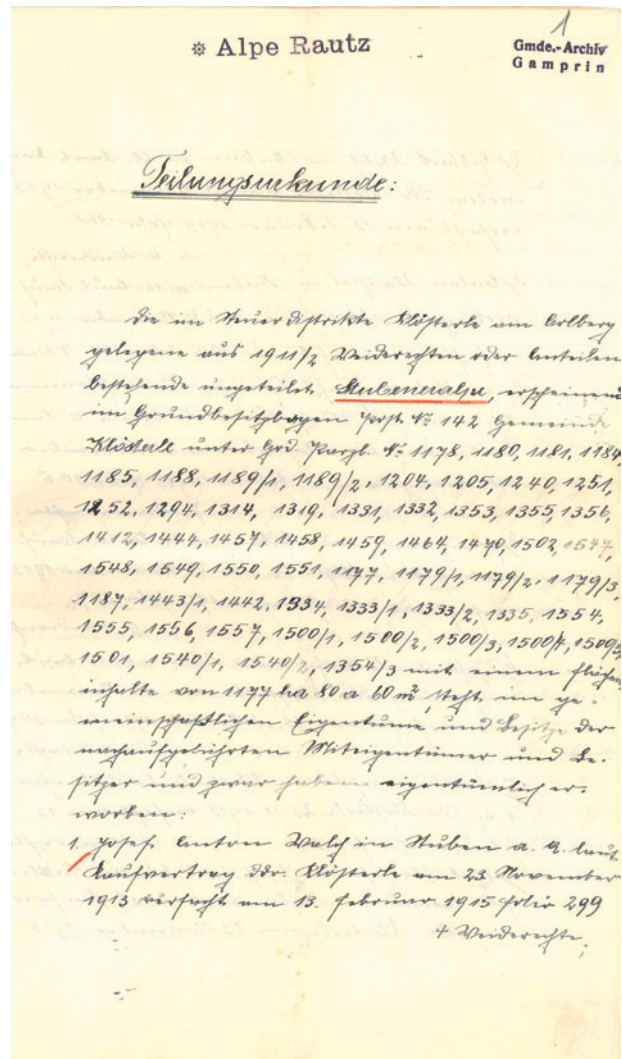 1
※ Alpe Rautz
Gmde.-Archiv
Gamprin
Teilungsurkunde:
Die im Steuerdistrikte Klösterle am Arlberg
gelegene aus 191 1/2 Weiderechten oder Anteilen
bestehende ungeteilte Stubeneralpe, erscheinend
im Grundbesitzbogen Post № 142 Gemeinde
Klösterle unter Grd. Parzl. № 1178, 1180, 1181, 1184,
1185, 1188, 1189/1, 1189/2, 1204, 1205, 1240, 1251,
1252, 1294, 1314, 1319, 1331, 1332, 1353, 1355, 1356,
1412, 1444, 1457, 1458, 1459, 1464, 1470, 1502, 1547,
1548, 1549, 1550, 1551, 1177, 1179/1, 1179/2, 1179/3,
1187, 1443/1, 1442, 1334, 1333/1, 1333/2, 1335, 1554,
1555, 1556, 1557, 1500/1, 1500/2, 1500/3, 1500/4, 1500/5,
1501, 1540/1, 1540/2, 1354/3 mit einem Flächen-
inhalte von 1177 ha 80 a 60 m², steht im ge-
meinschaftlichen Eigentume und Besitze der
nachaufgeführten Miteigentümer und Be-
sitzer und zwar haben eigentümlich er-
worben:
1. Josef Anton Walch in Stuben a. A. laut
Kaufvertrag ddo. Klösterle am 23. November
1913 verfacht am 13. Februar 1915 folio 299
4 Weiderechte;